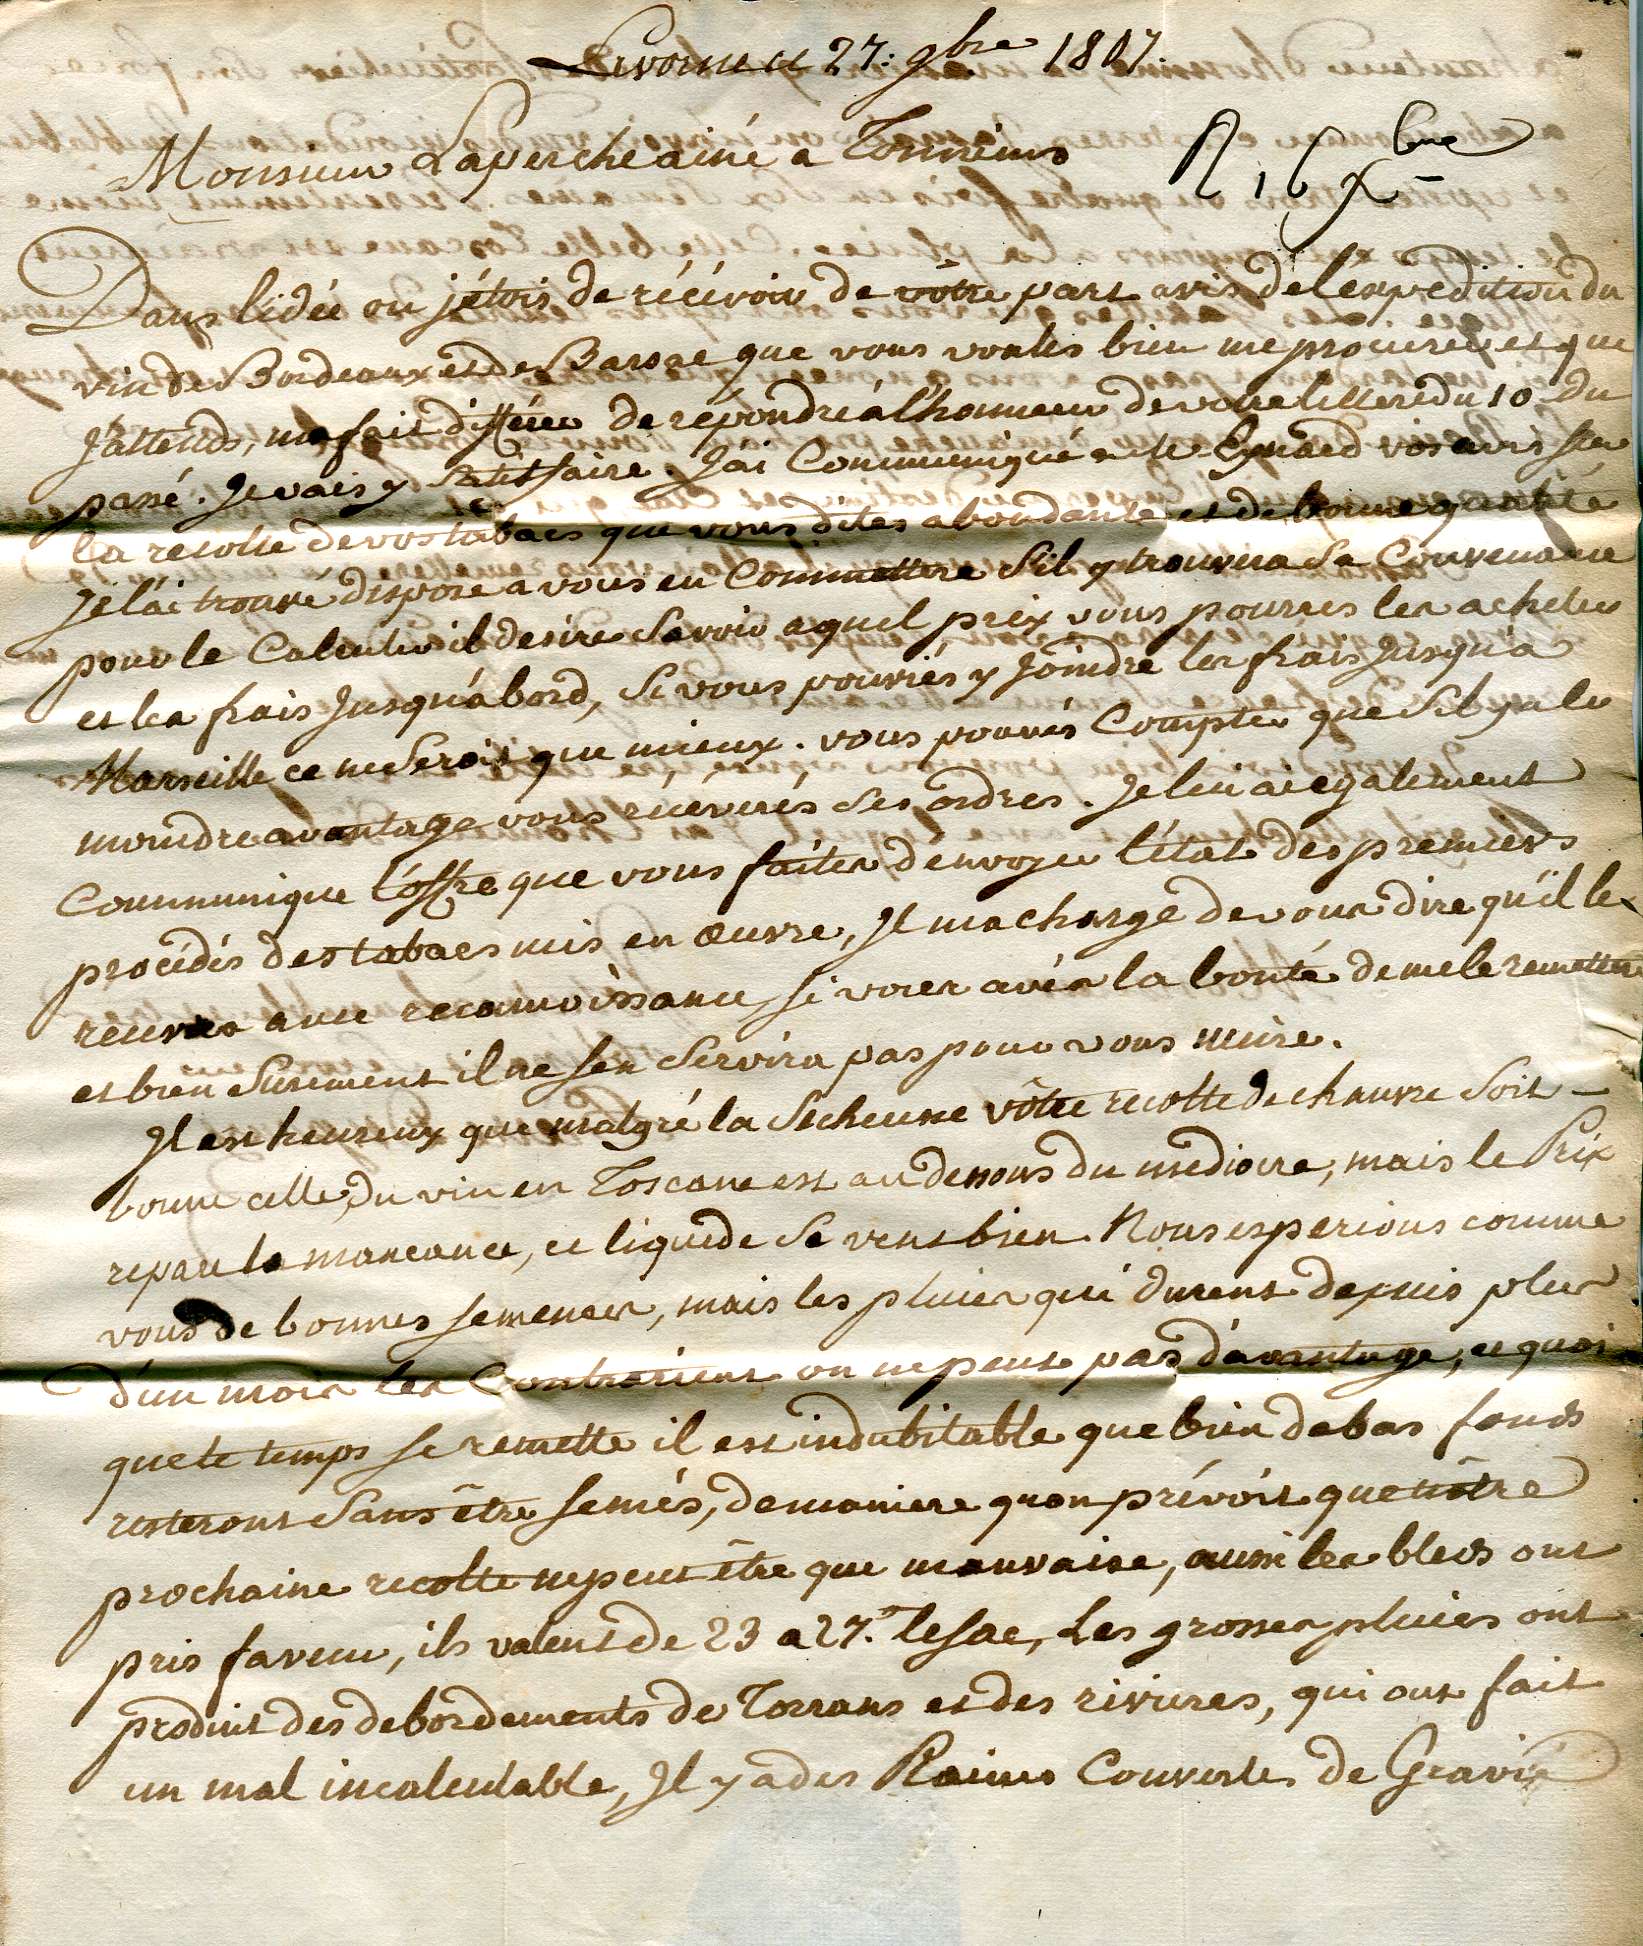 Livorne ce 27: 9bre 1807.
Monsieur Laperche ainé a Tonneins
R 16 Xbre
Dans lidée ou jétois de récévoir de vôtre part avis de léxpedition du
vin de Bordeaux et de Barsac que vous voulés bien me procurer et que
J'attends, ma fait différer de répondre à l'honneur de votre lettere du 10 du
passé. Je vais y satisfaire. J'ai Communiqué a Mr Eynard vos avis sur
la recolte de vos tabacs que vous dites abondante et de bonne qualité
Je l'ai trouvé disposé a vous en Committere s'il y trouvera Sa Convenance
pour le Calculer il desire Savoir a quel prix vous pourres les acheter
et les frais Jusqu'a bord, Si vous pouviés y Joindre les frais Jusqu'a
Marseille ce ne Seroit que mieux. vous pouvés Compter que S'il y a le
moindre avantage vous récévrés Ses ordres. Je lui ai egalement
Communiqué l'offre que vous faites d'envoyer l'état des premiers
procédés des tabacs mis en œuvre, Il ma chargé de vous dire qu'il le
recevra avec reconnoissance, si vous avés la bonté de me le remettere
et bien Surement il ne sen Servira pas pour vous nuire.
Il est heureux que malgré la Sécheresse vôtre recolte de chanvre Soit
bonne celle du vin en Toscane est au dessous du médiocre, mais le Prix
repare la mancance, ce liquide Se vent bien. Nous esperions comme
vous de bonnes semences, mais les pluies qui durent depuis plus
d'un mois les Contrarient on ne peut pas d'avantage, et quoi
que le temps se remette il est indubitable que bien de bas fonds
resteront Sans être semés, de maniere qu'on prévoit que nôtre
prochaine recolte ne peut être que mauvaise, aussi les bleds ont
pris faveur, ils valent de 23 a 27. le sac, Les grosses pluies ont
produit des debordements de Torrans et des rivieres, qui ont fait
un mal incalculable, Il y a des Plaines Couvertes de Gravié